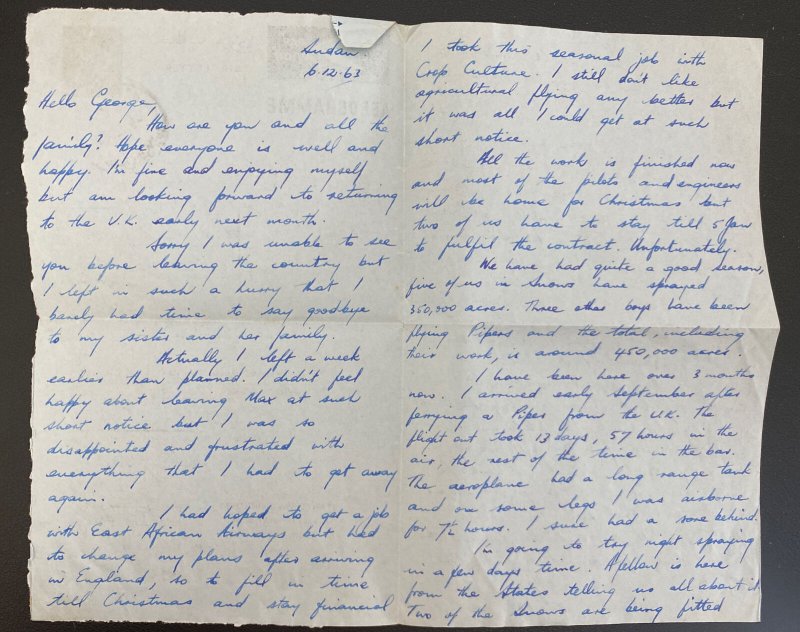 Sudan
6.12.63
Hello George,
How are you and all the
family? Hope everyone is well and
happy. I'm fine and enjoying myself
but am looking forward to returning
to the U.K. early next month.
Sorry I was unable to see
you before leaving the country but
I left in such a hurry that I
barely had time to say goodbye
to my sister and her family.
Actually I left a week
earlier than planned. I didn't feel
happy about leaving Max at such
short notice but I was so
disappointed and frustrated with
everything that I had to get away
again.
I had hoped to get a job
with East African Airways but had
to change my plans after arriving
in England, so to fill in time
till Christmas and stay financial
I took this seasonal job with
Crop Culture. I still don't like
agricultural flying any better but
it was all I could get at such
short notice.
All the work is finished now
and most of the pilots and engineers
will be home for Christmas but
two of us have to stay till 5 Jan
to fulfil the contract. Unfortunately.
We have had quite a good season,
five of us in Snows have sprayed
350,000 acres. Three other boys have been
flying Pipers and the total, including
their work, is around 450,000 acres.
I have been here over 3 months
now. I arrived early September after
ferrying a Piper from the U.K. The
flight out took 13 days, 57 hours in the
air, the rest of the time in the bar.
The aeroplane had a long range tank
and on some legs I was airborne
for 7½ hours. I sure had a sore behind.
I'm going to try night spraying
in a few days time. A fellow is here
from the States telling us all about it
Two of the Snows are being fitted